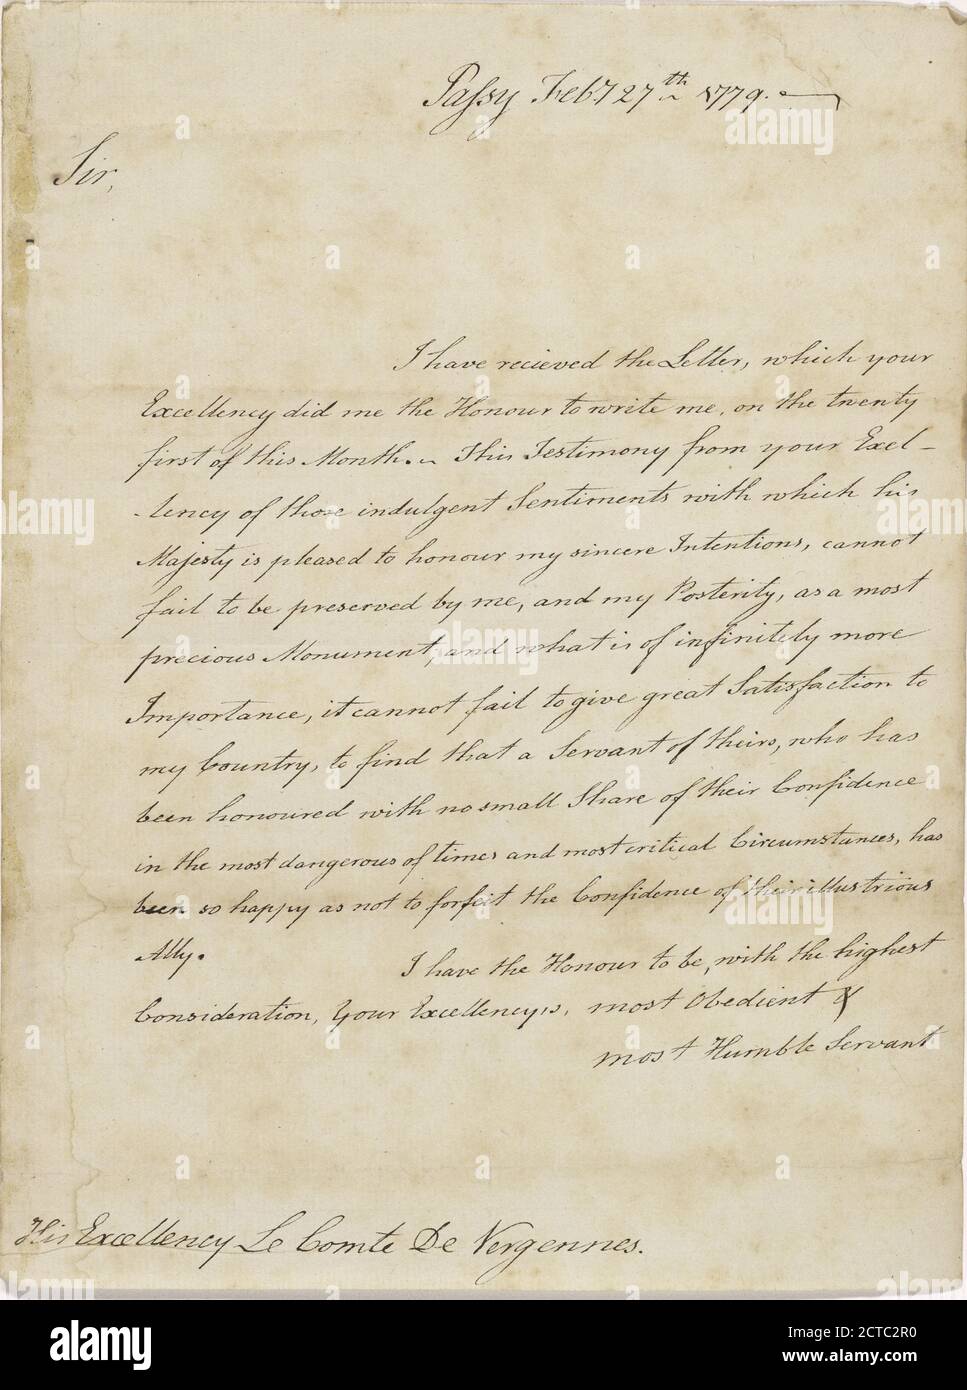 Passy Feby. 27th 1779.
Sir,
I have recieved the Letter, which your
Excellency did me the Honour to write me, on the twenty
first of this Month. This Testimony from your Excel-
-lency of those indulgent Sentiments with which his
Majesty is pleased to honour my sincere Intentions, cannot
fail to be preserved by me, and my Posterity, as a most
precious Monument, and what is of infinitely more
Importance, it cannot fail to give great Satisfaction to
my Country, to find that a Servant of theirs, who has
been honoured with no small Share of their Confidence
in the most dangerous of times and most critical Circumstances, has
been so happy as not to forfeit the Confidence of their illustrious
Ally.
I have the Honour to be, with the highest
Consideration, Your Excellency,s, most Obedient &
most Humble Servant
His Excellency Le Comte De Vergennes.
alamy
Image ID: 2CTC2R0
www.alamy.com